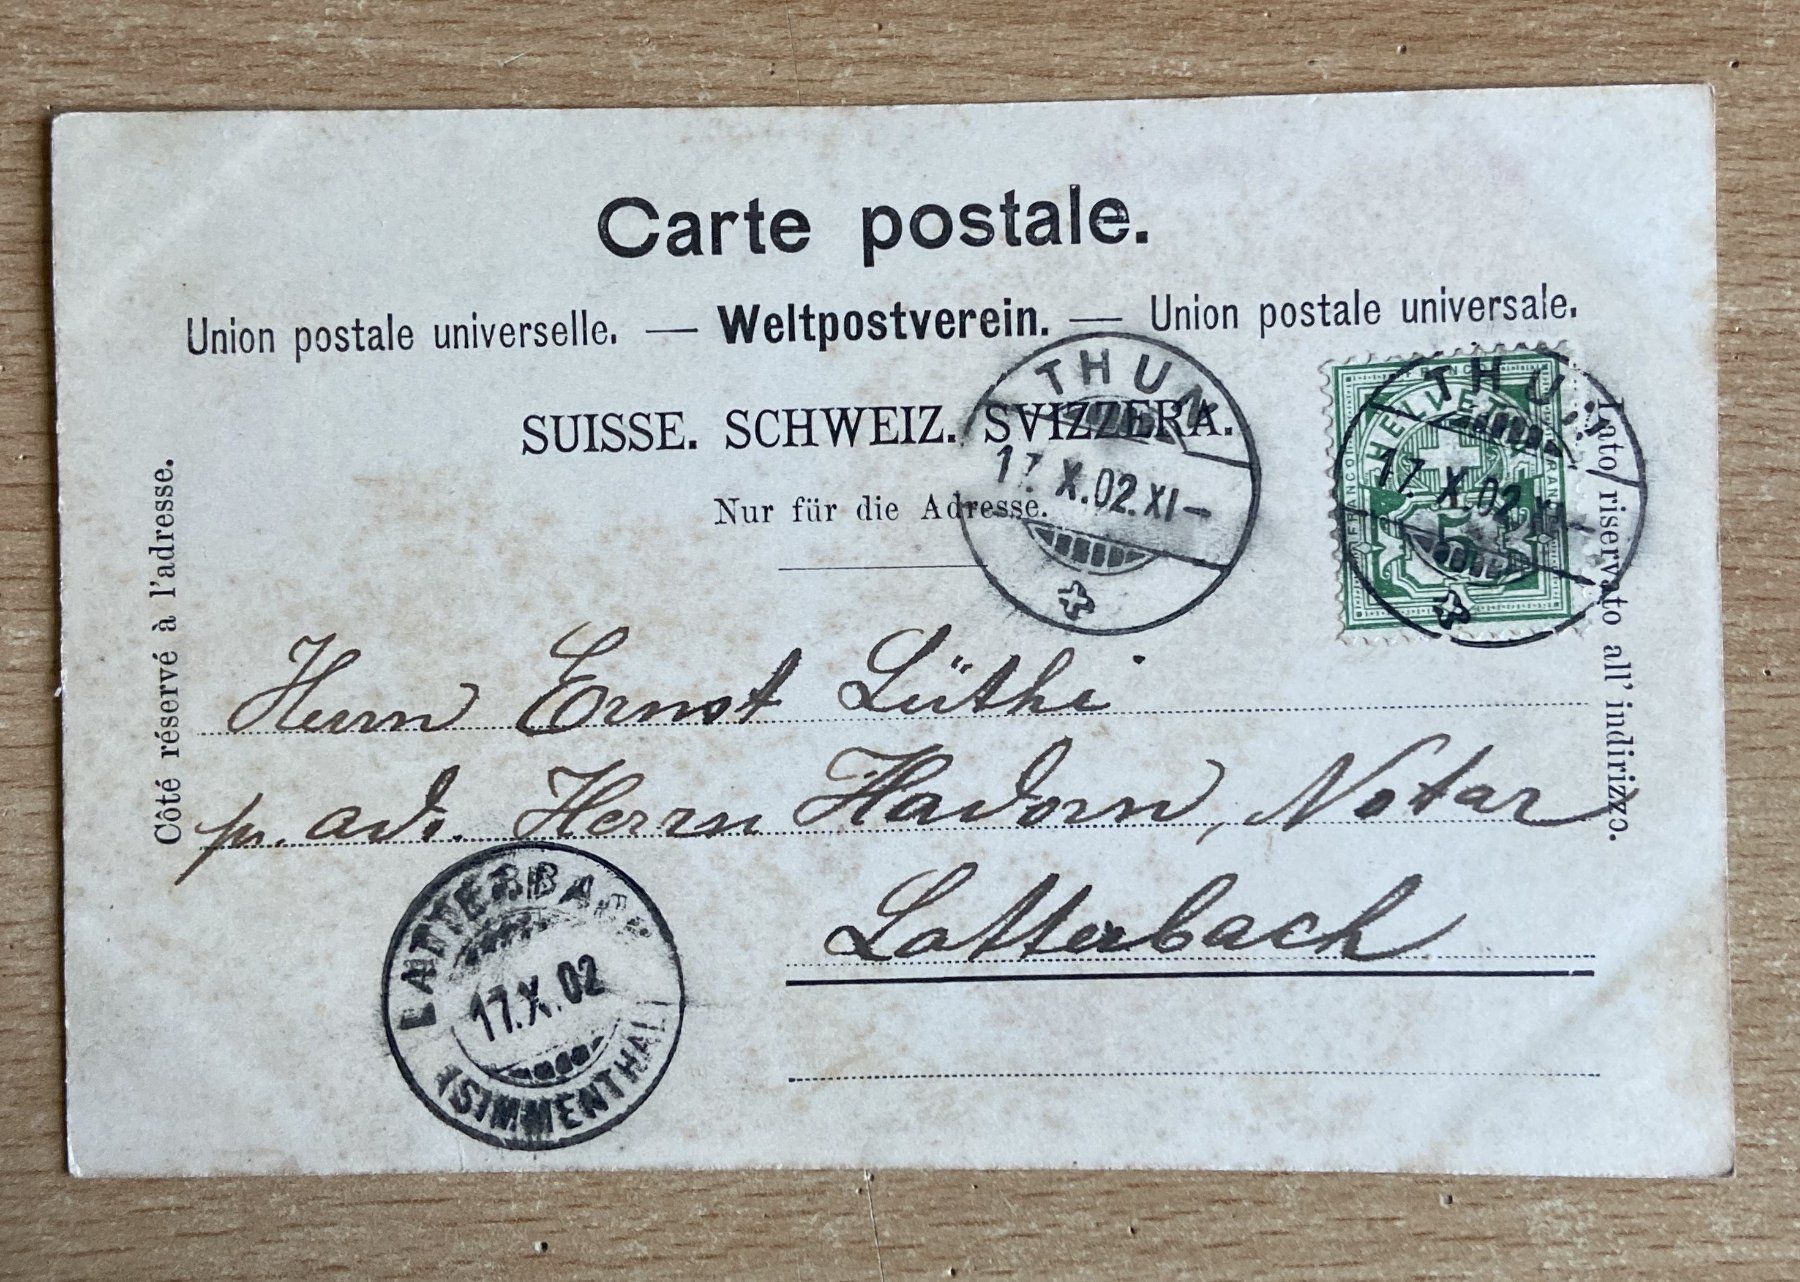 Carte postale.
Union postale universelle. — Weltpostverein. — Union postale universale.
SUISSE. SCHWEIZ. SVIZZERA.
Nur für die Adresse.
Côté réservé à l'adresse.
Lato riservato all' indirizzo.
THUN
17. X. 02. XI –
THUN
17. X. 02. XI –
HELVETIA
FRANCO
FRANCO
5
Herrn Ernst Lüthi
pr. ad. Herrn Hadorn, Notar
Latterbach
LATTERBACH
17. X. 02
(SIMMENTHAL)